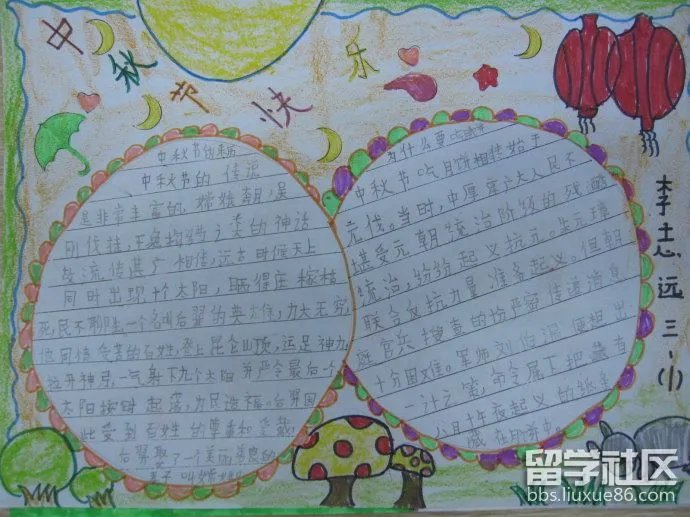 中秋节快乐
中秋节的来历
中秋节的传说
是非常丰富的,嫦娥奔月,吴
刚伐桂,玉兔捣药之类的神话
故流传甚广相传,远古时候天上
同时出现十个太阳,晒得庄稼枯
死,民不聊生,一个名叫后羿的英大保,力大无穷
他同情受苦的百姓,登上昆仑山顶,运足神力
拉开神弓,一气射下九个太阳 并严令最后一个
太阳按时起落,为民造福。后羿因
此受到百姓的尊重和爱戴
后羿娶了一个美丽善良的
妻子叫嫦娥
为什么要吃
中秋节吃月饼相传始于
元代。当时,中原广大人民不
堪受元朝统治阶级的残酷
统治,纷纷起义抗元。朱元璋
联合反抗力量,准备起义。但朝
庭官兵搜查的份严密 传递消息
十分困难。军师刘伯温便想出
一计之策,命令属下把藏有
八月十五夜起义的纸条
藏在
李志远
三、(1)
留学社区
bbs.liuxue86.com